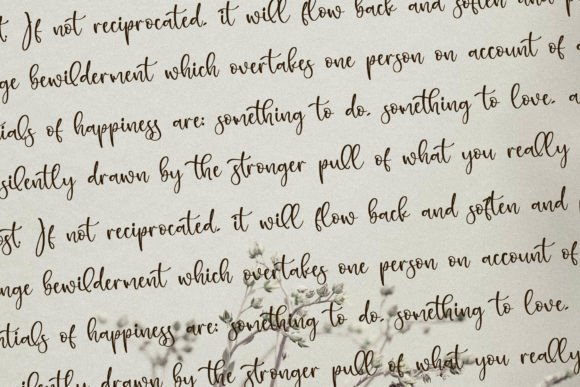 If not reciprocated, it will flow back and soften and
bewilderment which overtakes one person on account of
of happiness are: something to do, something to love, a
silently drawn by the stronger pull of what you really
If not reciprocated, it will flow back and soften and
bewilderment which overtakes one person on account of
of happiness are: something to do, something to love,
silently drawn by the stronger pull of what you really